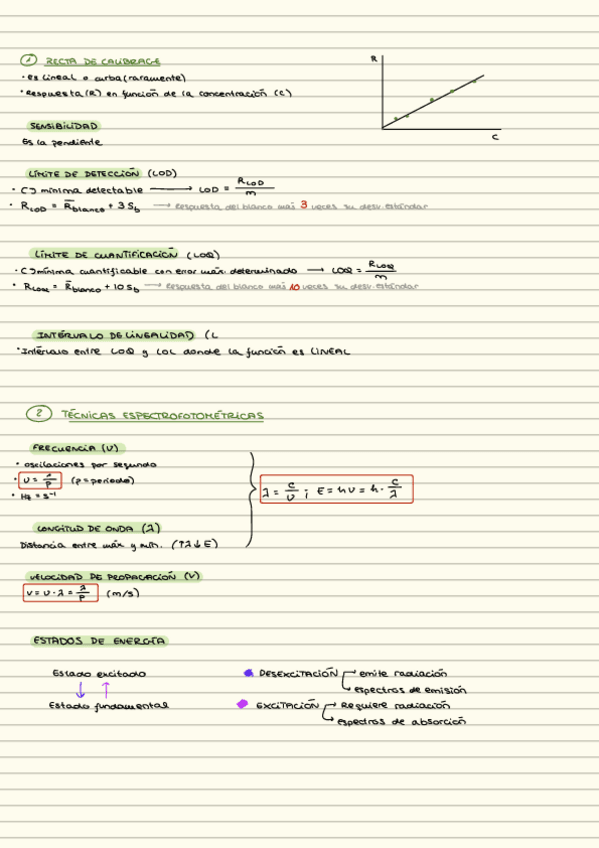 ① RECTA DE CALIBRAGE
· es lineal o curba (raramente)
· Respuesta (R) en función de la concentración (C)
R
C
SENSIBILIDAD
Es la pendiente
LÍMITE DE DETECCIÓN (LOD)
· [ ] mínima detectable → LOD = R_LOD / m
· R_LOD = R̄blanco + 3 Sb → Respuesta del blanco más 3 veces su desv. estándar
LÍMITE DE CUANTIFICACIÓN (LOQ)
· [ ] mínima cuantificable con error máx. determinado → LOQ = R_LOQ / m
· R_LOQ = R̄blanco + 10 Sb → Respuesta del blanco más 10 veces su desv. estándar
INTÉRVALO DE LINEALIDAD (L
· Intérvalo entre LOQ y LOL donde la función es LINEAL
② TÉCNICAS ESPECTROFOTOMÉTRICAS
FRECUENCIA (ν)
· oscilaciones por segundo
(p = periodo)
· Hz = s⁻¹
λ = c/ν ; E = hν = h · c/λ
LONGITUD DE ONDA (λ)
Distancia entre máx y mín. (↑λ ↓E)
VELOCIDAD DE PROPAGACIÓN (V)
v = ν · λ = λ/p (m/s)
ESTADOS DE ENERGÍA
Estado excitado
↓ ↑
Estado fundamental
DESEXCITACIÓN → emite radiación
→ espectros de emisión
EXCITACIÓN → Requiere radiación
→ espectros de absorción